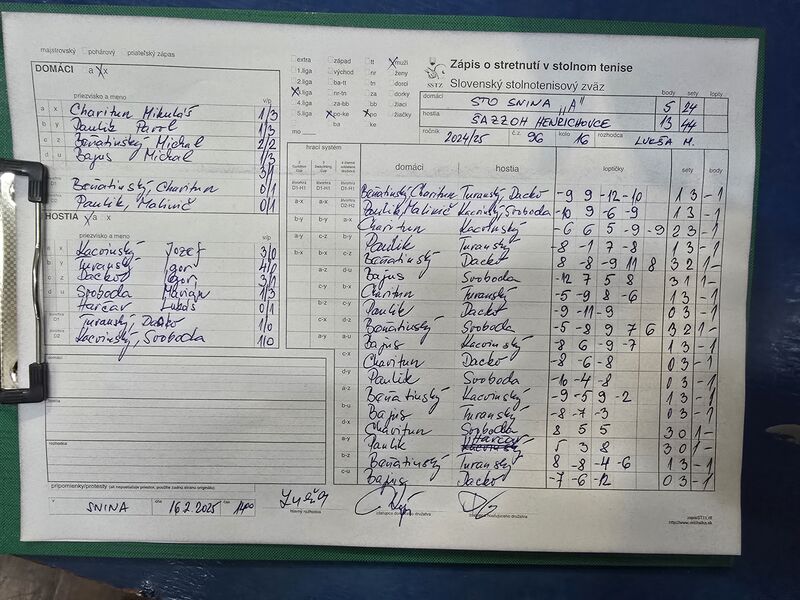 majstrovský pohárový priateľský zápas
DOMÁCI a x
priezvisko a meno v/p
a x Charitun Mikuláš 1/3
b y Paulik Pavol 1/3
c z Beňatinský Michal 2/2
d u Bajus Michal 1/3
Beňatinský, Charitun 0/1
Paulik, Malinič 0/1
HOSTIA a x
priezvisko a meno v/p
Kacvinský Jozef 3/0
Turanský Igor 4/0
Dacko Igor 3/1
Svoboda Marián 1/3
Harčar Lukáš 0/1
Turanský, Dacko 1/0
Kacvinský, Svoboda 1/0
domáci
hostia
rozhodca
pripomienky/protesty
v SNINA dňa 16.2.2025 čas 1400
hlavný rozhodca
zástupca domáceho družstva
zástupca hosťujúceho družstva
extra západ tt muži
1.liga východ nr ženy
2.liga ba-tt tn dorci
3.liga nr-tn za dorky
4.liga za-bb bb žiaci
5.liga po-ke po žiačky
mo ke
SSTZ
Zápis o stretnutí v stolnom tenise
Slovenský stolnotenisový zväz
body sety lopty
domáci STO SNINA „A" 5 24
hostia ŠAZZOH HENRICHOVCE 13 44
ročník 2024/25 č.z. 96 kolo 16 rozhodca LUKŠA M.
hrací systém
domáci hostia loptičky sety body
Beňatinský, Charitun Turanský, Dacko -9 9 -12 -10 1 3 - 1
Paulik, Malinič Kacvinský, Svoboda -10 9 -6 -9 1 3 - 1
Charitun Kacvinský -6 6 5 -9 -9 2 3 - 1
Paulik Turanský -8 -1 7 -8 1 3 - 1
Beňatinský Dacko 8 -8 -9 11 8 3 2 1 -
Bajus Svoboda -12 7 5 8 3 1 1 -
Charitun Turanský -5 -9 8 -6 1 3 - 1
Paulik Dacko -9 -11 -9 0 3 - 1
Beňatinský Svoboda -5 -8 9 7 6 3 2 1 -
Bajus Kacvinský 8 6 -9 -7 1 3 - 1
Charitun Dacko -8 -6 -8 0 3 - 1
Paulik Svoboda -10 -4 -8 0 3 - 1
Beňatinský Kacvinský -9 -5 9 -2 1 3 - 1
Bajus Turanský -8 -7 -3 0 3 - 1
Charitun Svoboda 8 5 5 3 0 1 -
Paulik Harčar 5 3 8 3 0 1 -
Beňatinský Turanský 8 -8 -4 -6 1 3 - 1
Bajus Dacko -7 -6 -12 0 3 - 1